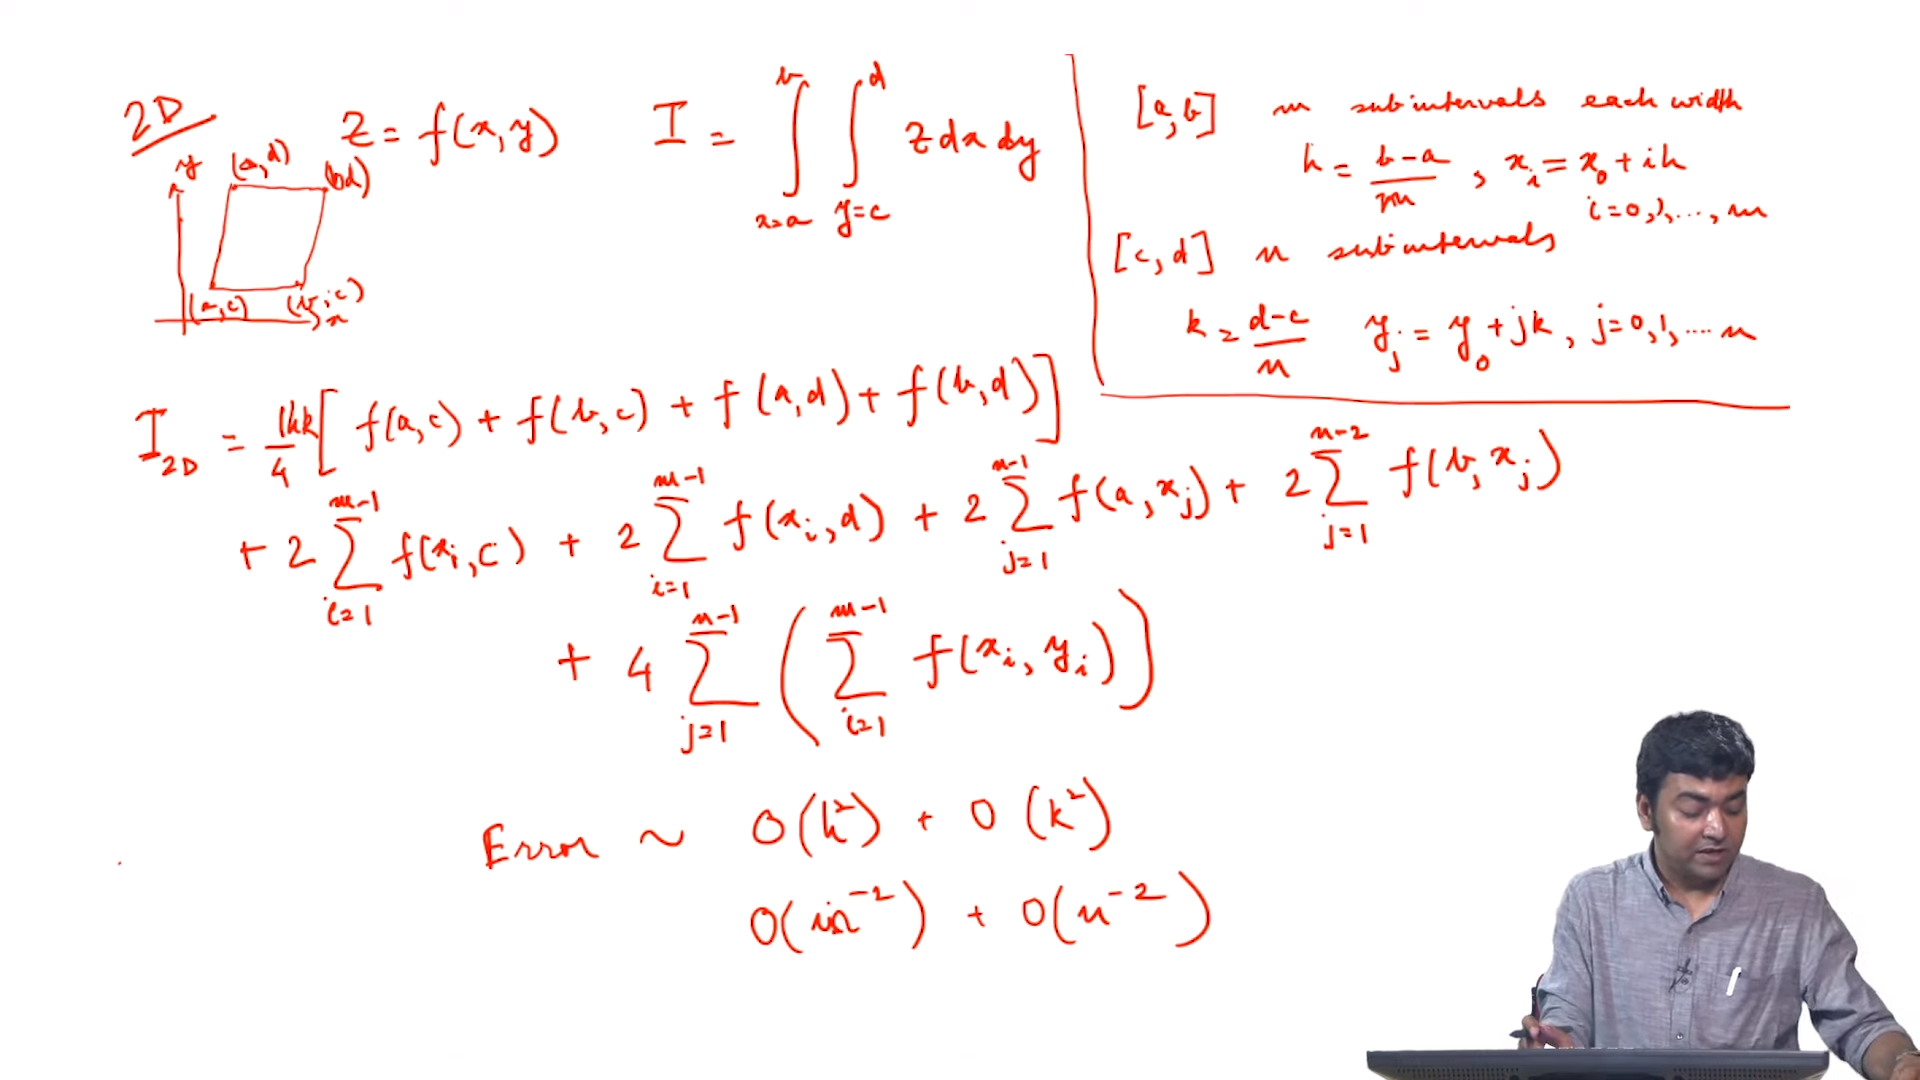 2D
Z = f(x, y)
I = ∫_{x=a}^{b} ∫_{y=c}^{d} z dx dy
y
(a, d)
(b d)
(a, c)
(b, c)
x
[a, b] m subintervals each width
h = (b-a)/m , x_i = x_0 + ih
i = 0, 1, ..., m
[c, d] n subintervals
k = (d-c)/n y_j = y_0 + jk , j = 0, 1, .... n
I_{2D} = 1hk/4 [ f(a, c) + f(b, c) + f(a, d) + f(b, d) ]
+ 2 ∑_{i=1}^{m-1} f(x_i, c) + 2 ∑_{i=1}^{m-1} f(x_i, d) + 2 ∑_{j=1}^{n-1} f(a, x_j) + 2 ∑_{j=1}^{n-2} f(b, x_j)
+ 4 ∑_{j=1}^{n-1} ( ∑_{i=1}^{m-1} f(x_i, y_i) )
Error ~ O(h^2) + O(k^2)
O(m^{-2}) + O(n^{-2})